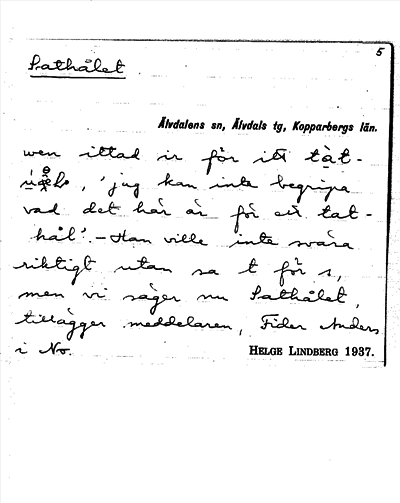 5
Sathålet
Älvdalens sn, Älvdals tg, Kopparbergs län.
wen ittad ir för itt tàt-
, 'jag kan inte begripa
vad det här är för ett tat-
hål'. – Han ville inte svära
riktigt utan sa t för s,
men vi säger nu Sathålet,
tillägger meddelaren, Fider Anders
i No.
HELGE LINDBERG 1937.